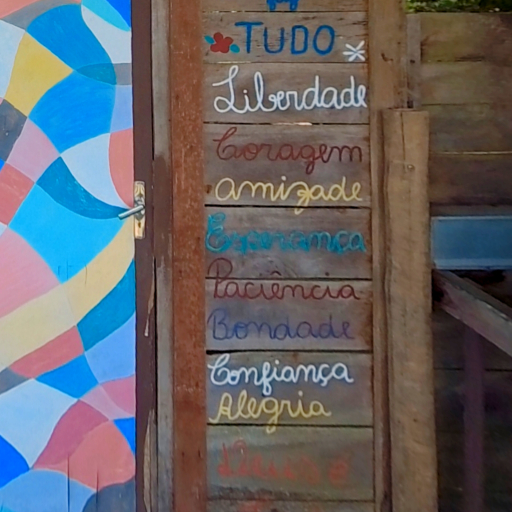 TUDO
Liberdade
Coragem
Amizade
Esperança
Paciência
Bondade
Confiança
Alegria